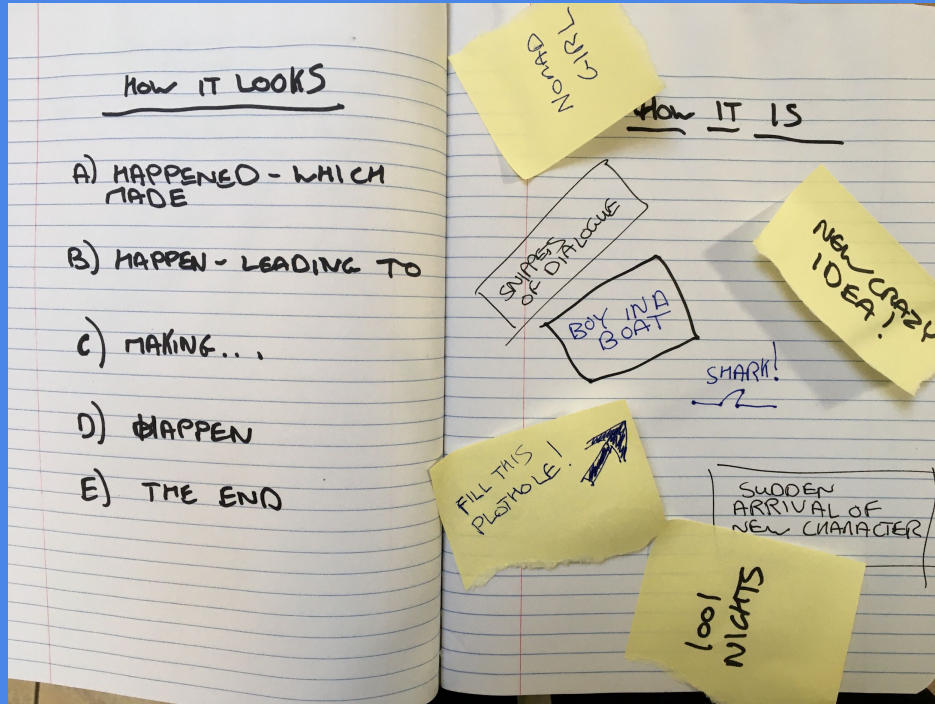 HOW IT LOOKS
A) HAPPENED - WHICH
MADE
B) HAPPEN - LEADING TO
C) MAKING...
D) HAPPEN
E) THE END
NOMAD
GIRL
HOW IT IS
SNIPPETS
OF DIALOGUE
BOY IN A
BOAT
NEW CRAZY
IDEA!
SHARK!
FILL THIS
PLOTHOLE!
SUDDEN
ARRIVAL OF
NEW CHARACTER
1001
NIGHTS